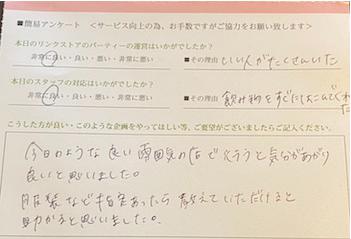 ■簡易アンケート <サービス向上の為、お手数ですがご協力をお願い致します>
本日のリンクストアのパーティーの運営はいかがでしたか?
非常に良い・良い・悪い・非常に悪い ■その理由 いい人がたくさんいた
本日のスタッフの対応はいかがでしたか?
非常に良い・良い・悪い・非常に悪い ■その理由 飲み物をすぐにはこんでくれた
こうした方が良い・このような企画をやってほしい等、ご要望がございましたらご記入ください。
今日のような良い雰囲気の店で行うと気分があがり
良いと思いました。
服装など指定あったら教えていただけると
助かると思いました。